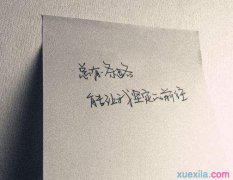 总有条路
能让我坚定的前往
xuexila.com